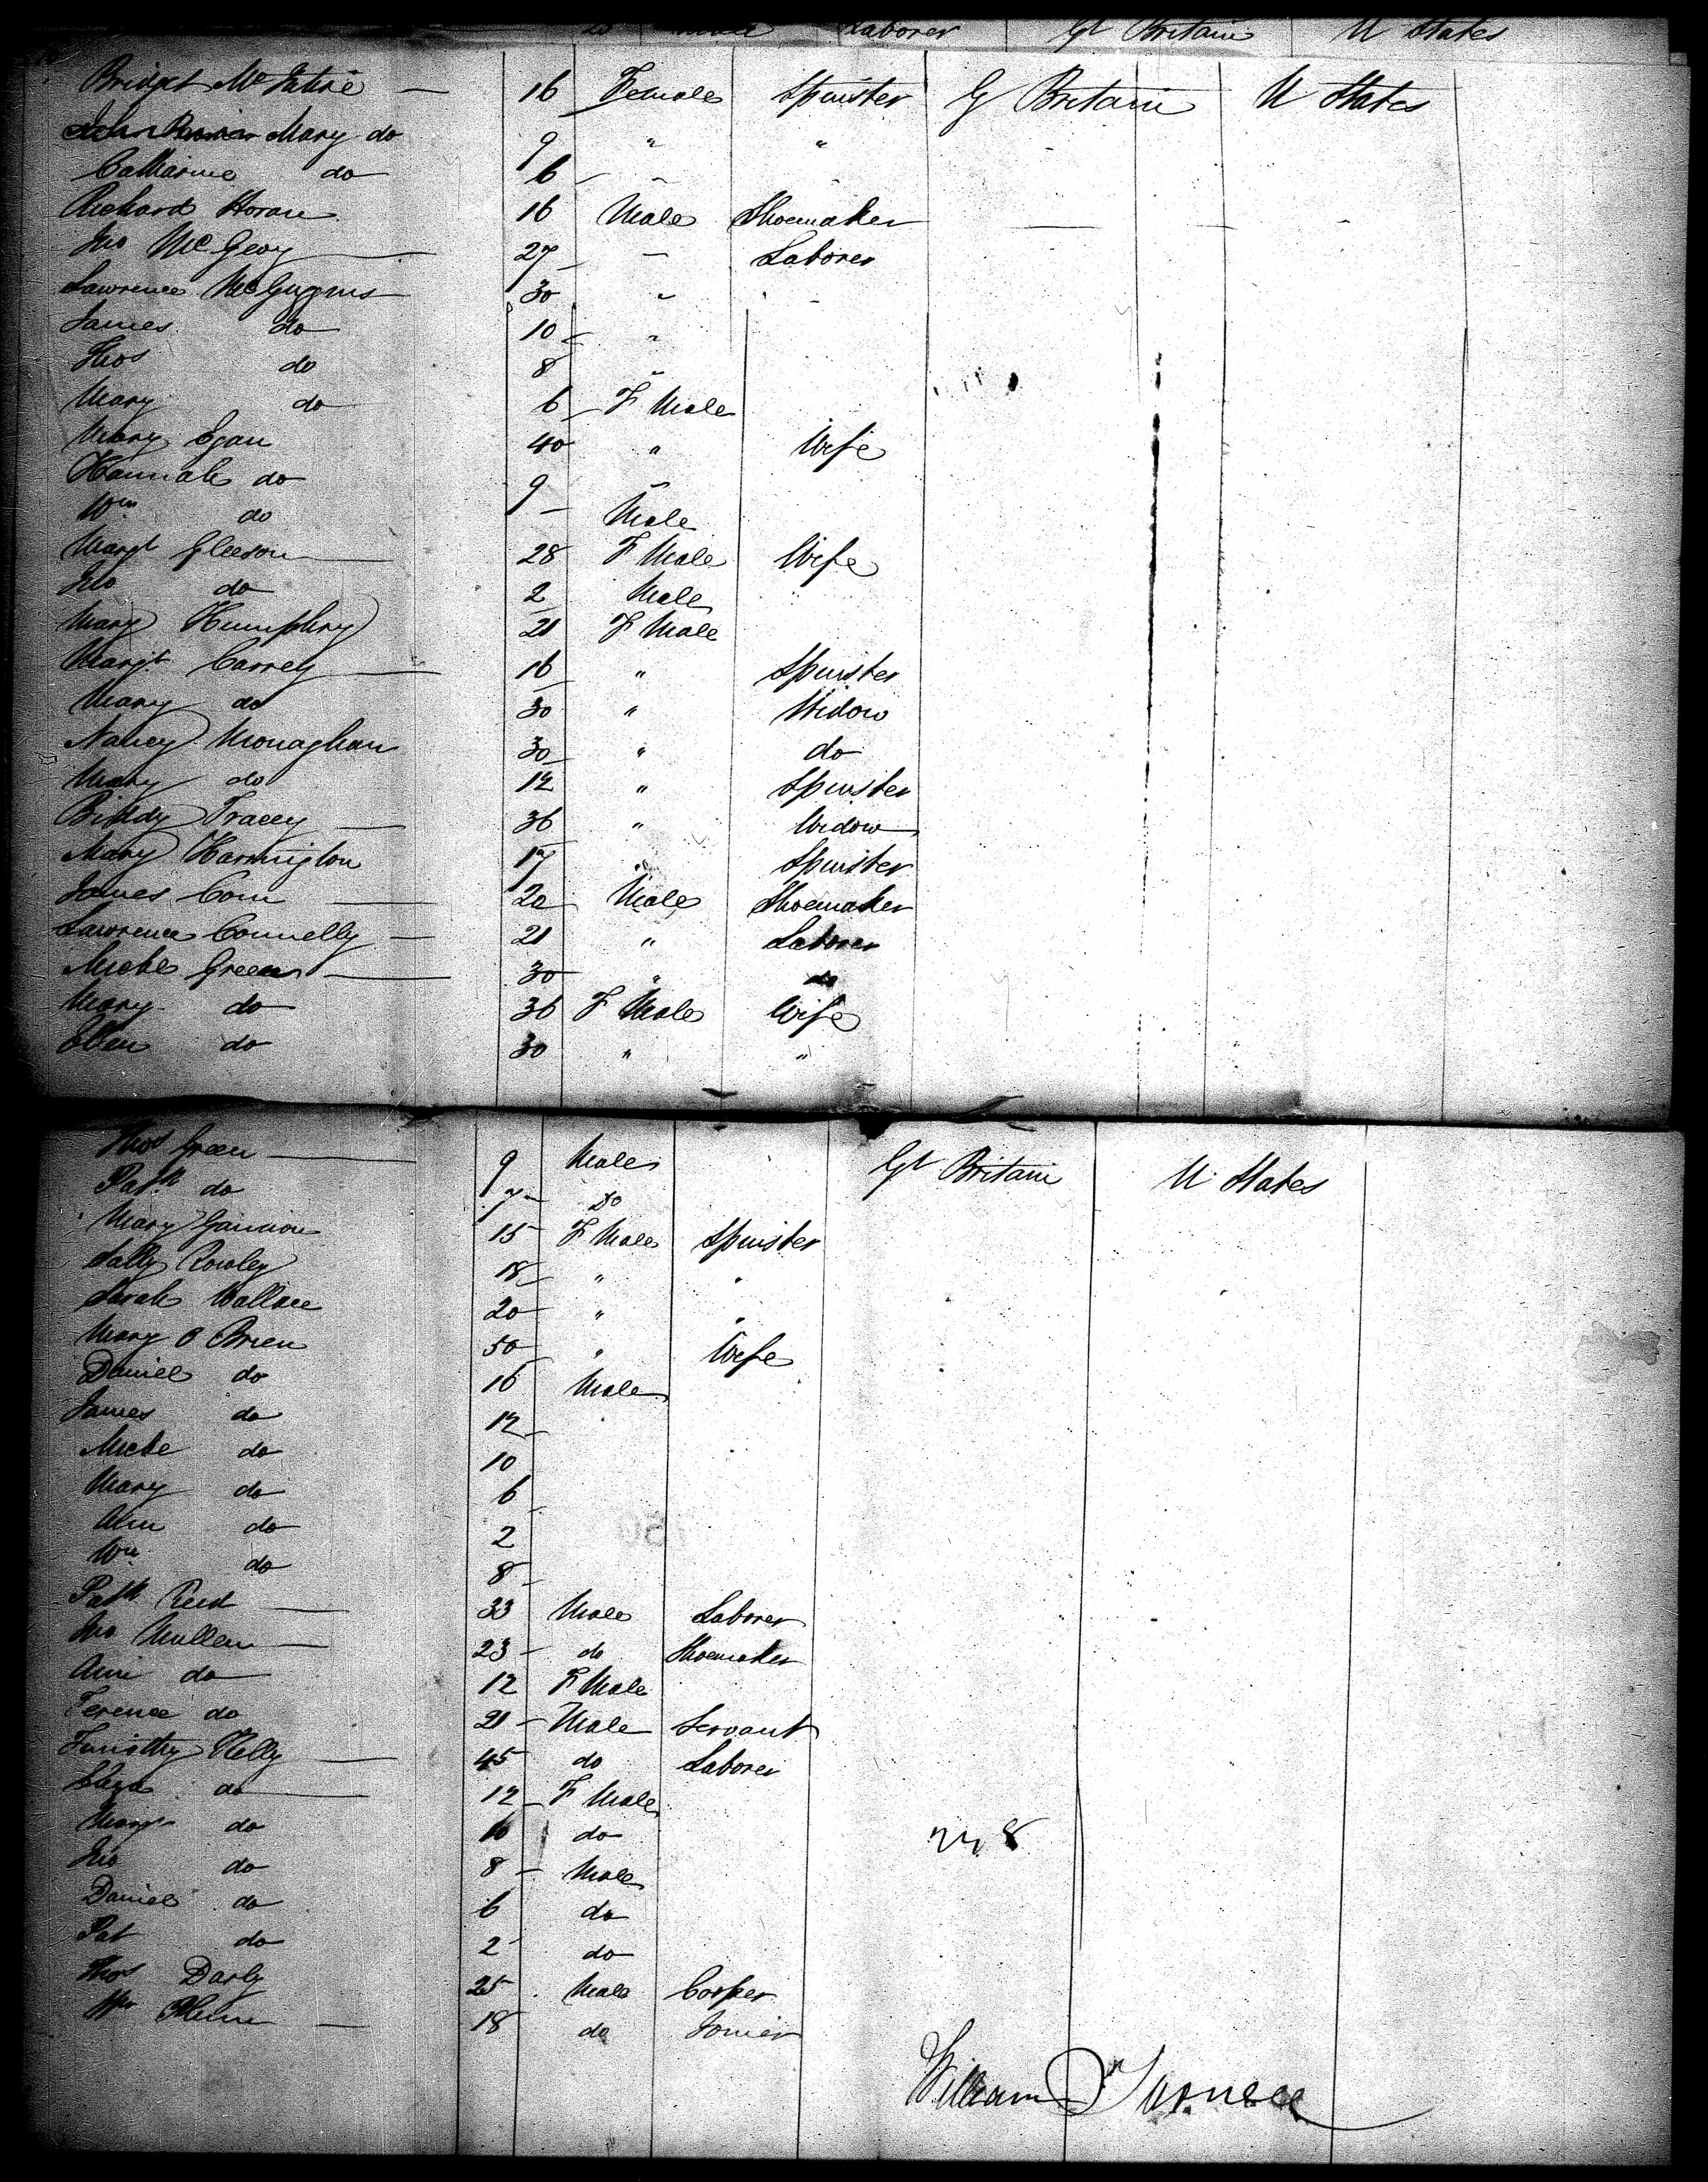 Laborer Gt Britain U States
Bridget McEntire 16 Female Spinster G Britain U States
Mary do 9 " "
Catharine do 6
Richard Horan 16 Male Shoemaker
Jno McGeoy 27 Laborer
Lawrence 30 "
James do 10 "
Thos do 8 "
Mary do 6 F Male
Mary Egan 40 " Wife
Hannah do 9 "
Wm do Male
Margt Gleeson 28 F Male Wife
Jno do 2 Male
Mary Humphry 21 F Male
Margt Carrey 16 " Spinster
Mary do 30 " Widow
Nancy Monaghan 30 " do
Mary do 12 " Spinster
Biddy Tracey 36 " Widow
Mary Harrington 17 " Spinster
James 20 Male Shoemaker
Lawrence Connelly 21 " Laborer
Michl Green 30 " do
Mary do 36 F Male Wife
Ellen do 30 " "
Thos Green 9 Male Gt Britain U States
Patk do 7 Do
Mary Gannon 15 F Male Spinster
Sally Rowley 18 " "
Sarah Wallace 20 " "
Mary O Brien 50 " Wife
Daniel do 16 Male
James do 12
Michl do 10
Mary do 6
Ann do 2
Wm do 8
Patk Reid 33 Male Laborer
Jno Mullen 23 do Shoemaker
Ann do 12 F Male
Terence do 21 Male Servant
Timothy Kelly 45 do Laborer
do 12 F Male
Mary do 10 do
Jno do 8 Male
Daniel do 6 do
Pat do 2 do
Thos Darly 25 Male Cooper
18 do Joiner
William